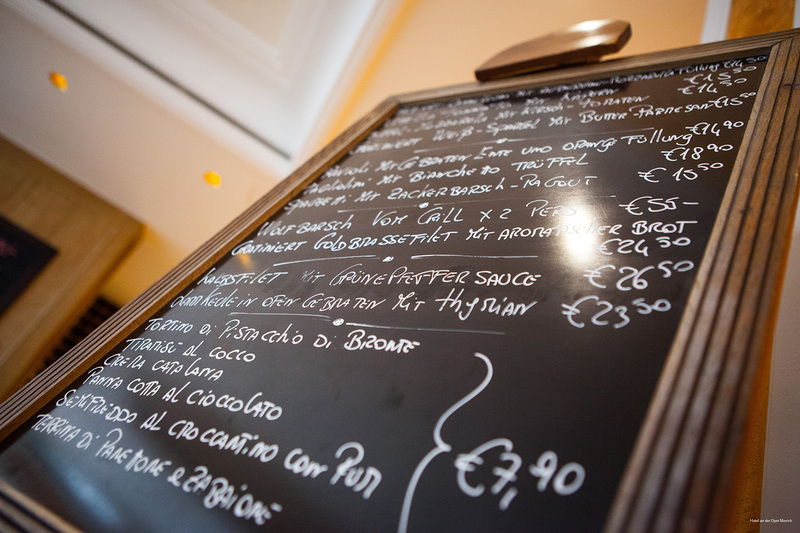 Füllung €14⁵⁰
Mit €15⁵⁰
Mit €14⁵⁰
Spargel Mit Butter-Parmesan €15⁵⁰
Mit Gebraten Ente und orange Füllung €14⁹⁰
Tagliolini Mit Bianchetto Trüffel €18⁹⁰
Spaghetti Mit Zackerbarsch-Ragout €15⁵⁰
Wolfbarsch Vom Grill x 2 Pers €55-
Gratiniert Goldbrassefilet Mit aromatischer Brot €24⁵⁰
Kalbsfilet Mit Grünepfeffer Sauce €26⁵⁰
Lammkeule in ofen Gebraten Mit thymian €23⁵⁰
Tortino di Pistacchio di Bronte
Tiramisù al cocco
Crema catalana
Panna cotta al cioccolato
Semifreddo al croccantino con Rum
Terrina di Panettone e Zabaione
€7,90
Hotel an der Oper Munich